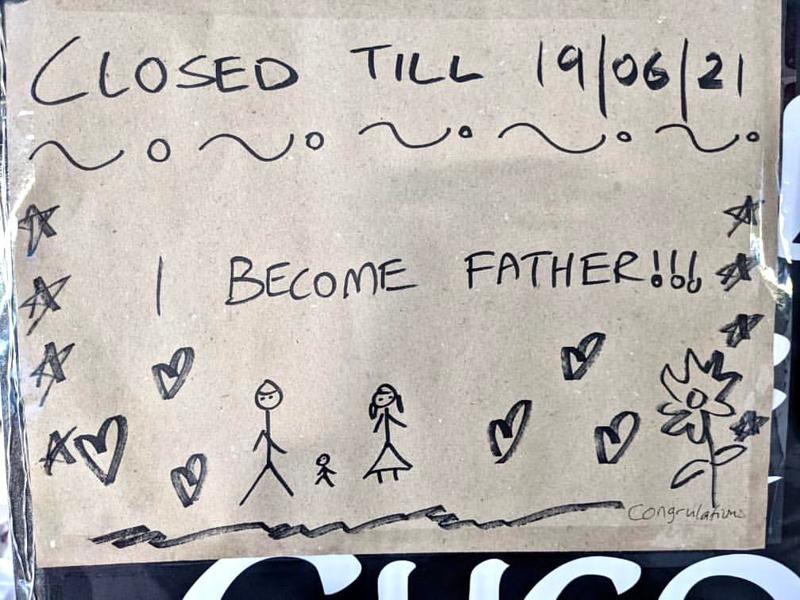 CLOSED TILL 19/06/21
I BECOME FATHER!!!
Congrulations